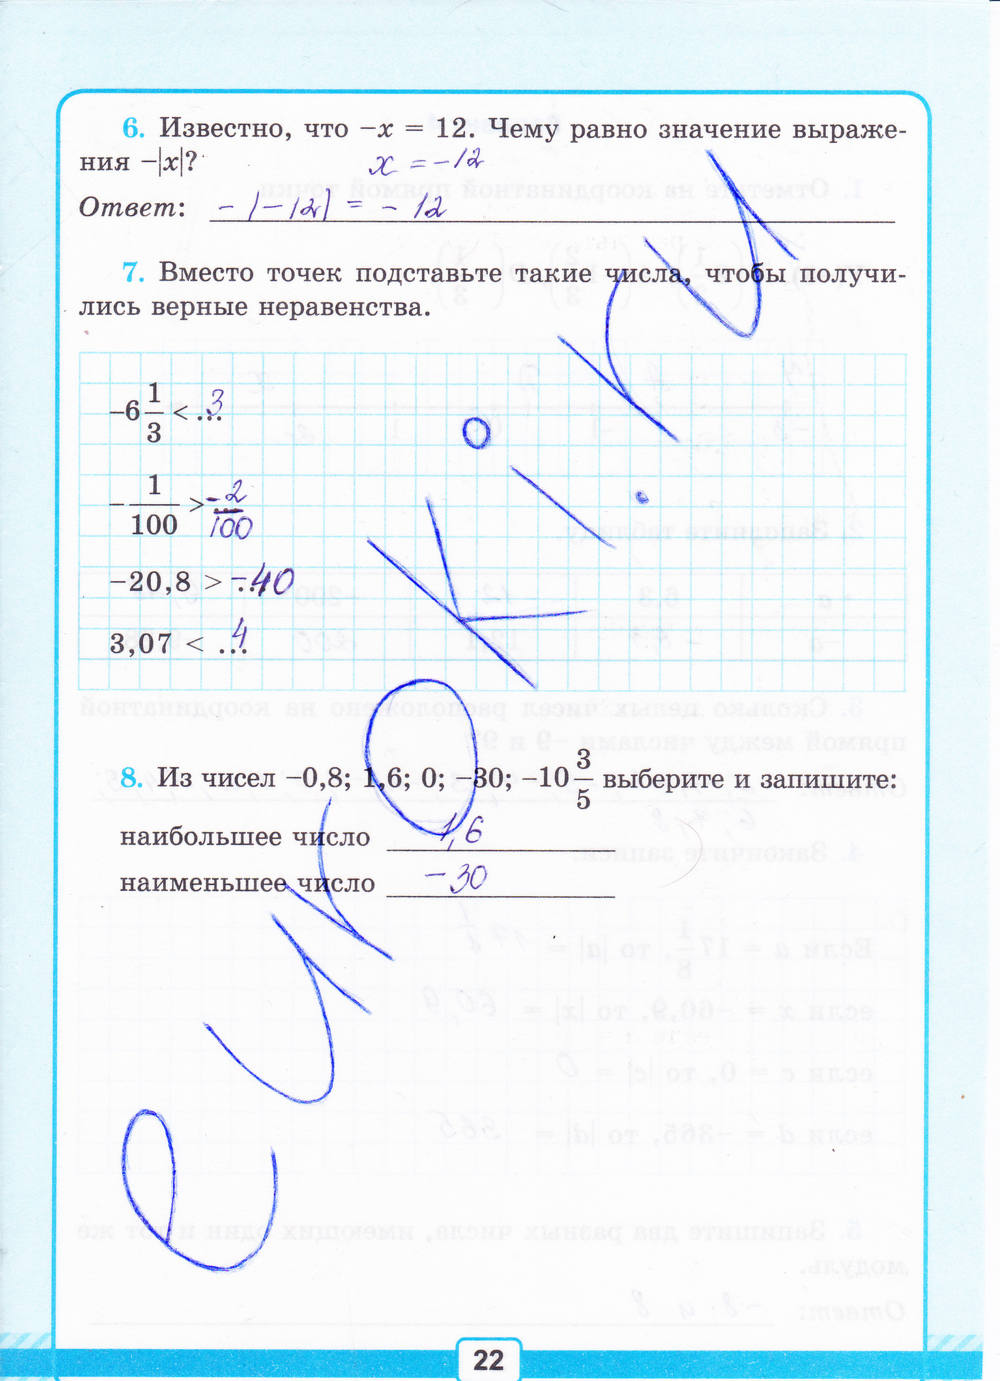 6. Известно, что –x = 12. Чему равно значение выраже-
ния –|x|? x = –12
Ответ: –|–12| = –12
7. Вместо точек подставьте такие числа, чтобы получи-
лись верные неравенства.
–6 1/3 < ...3
–1/100 > –2/100
–20,8 > ...–40
3,07 < ...4
8. Из чисел –0,8; 1,6; 0; –30; –10 3/5 выберите и запишите:
наибольшее число 1,6
наименьшее число –30
eurokI.ru
22